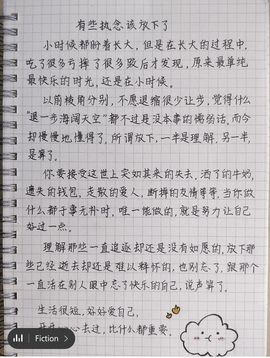 有些执念该放下了
小时候都盼着长大,但是在长大的过程中,
吃了很多亏摔了很多跤后才发现,原来最单纯
最快乐的时光,还是在小时候。
以前棱角分别,不愿退缩很少让步,觉得什么
“退一步海阔天空”都不过是没本事的懦弱话,而今
却慢慢地懂得了,所谓放下,一半是理解,另一半,
是算了。
你要接受这世上突如其来的失去,洒了的牛奶,
遗失的钱包,走散的爱人,断掉的友情等等,当你做
什么都于事无补时,唯一能做的,就是努力让自己
好过一点。
理解那些一直追逐却还是没有如愿的,放下那
些已经逝去却还是难以释怀的,也别忘了,跟那个
一直活在别人眼中忘了快乐的自己,说声算了。
生活很短,好好爱自己,
心去过,比什么都重要。
Fiction